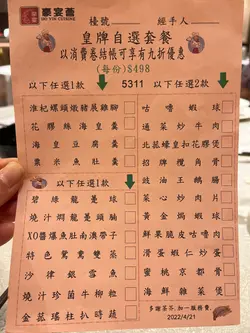 豪宴薈
HO YIN CUISINE
檯號 經手人
皇牌自選套餐
以消費卷結帳可享有九折優惠
(每份)$498
以下任選1款 5311 以下任選2款
淮杞螺頭燉豬展雞腳
花膠絲海皇羹
海皇豆腐羹
粟米魚肚羹
以下任選1款
碧綠龍躉球
燒汁焗龍躉球
XO醬爆魚肚南澳帶子
特色鴛鴦雙蒸
沙律銀雪魚
燒汁珍菌牛柳粒
金菇瑤柱扒時蔬
咕嚕蝦球
通菜炒牛肉
北菇蠔皇扣花膠筒
招牌欖角骨
豉油王鵝腸
菜心炒肉片
黃金焗蝦球
鮮果脆皮咕嚕肉
滑蛋蝦仁炒蛋
蜜桃京都骨
海鮮雜菜煲
多謝茶芥,加一服務費
2022/4/21